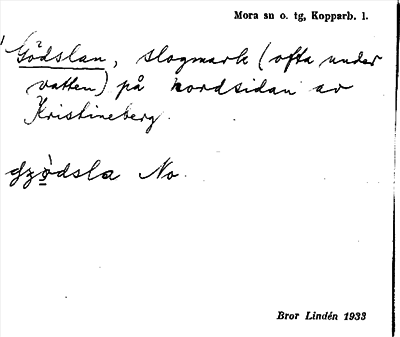 Mora sn o. tg, Kopparb. l.
Gödslan, slogmark (ofta under
vatten) på nordsidan av
Kristineberg.
gzò̲dsla No.
Bror Lindén 1933